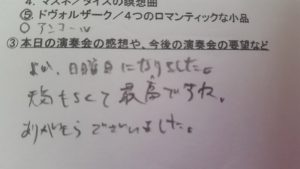 4. マスネ/タイスの瞑想曲
⑤. ドヴォルザーク/4つのロマンティックな小品
○ アンコール
③本日の演奏会の感想や、今後の演奏会の要望など
よい日曜日になりました。
天気もよくて最高ですね。
ありがとうございました。